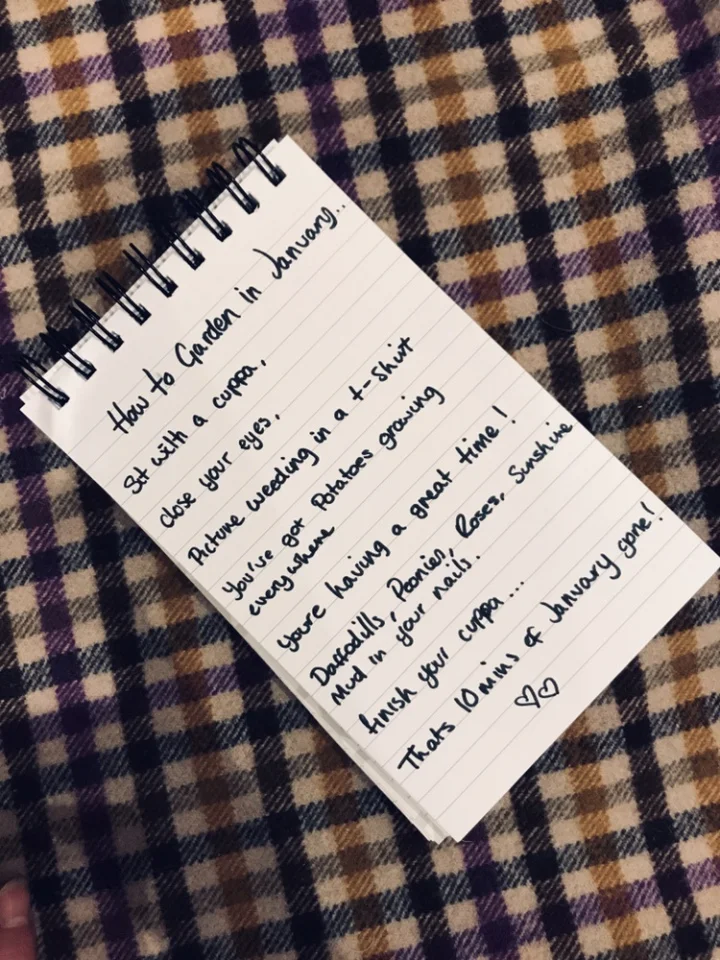 How to Garden in January..
Sit with a cuppa,
close your eyes,
Picture weeding in a t-shirt
You've got Potatoes growing
everywhere
you're having a great time!
Daffodills, Peonies, Roses, Sunshine
Mud in your nails.
finish your cuppa...
Thats 10 mins of January gone!